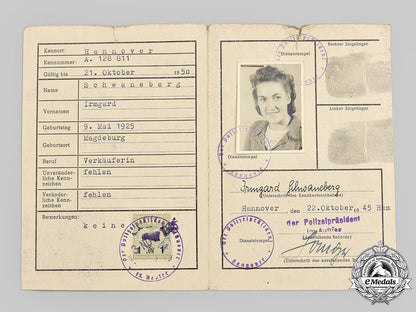 Kennort: Hannover
Kennummer: A. 128 811
Gültig bis 21. Oktober 1950
Name Schwaneberg
Vornamen Irmgard
Geburtstag 9. Mai 1925
Geburtsort Magdeburg
Beruf Verkäuferin
Unveränder-
liche Kenn-
zeichen fehlen
Veränder-
liche Kenn-
zeichen fehlen
Bemerkungen: keine
Der Polizeipräsident
Dienststempel
Rechter Zeigefinger
Linker Zeigefinger
Der Polizeipräsident
Hannover
Dienststempel
Irmgard Schwaneberg
(Unterschrift des Kennkarteninhabers)
Hannover, den 22. Oktober 45
Der Polizeipräsident
(Ausstellende Behörde)
Dienststempel
Hannover
eMedals